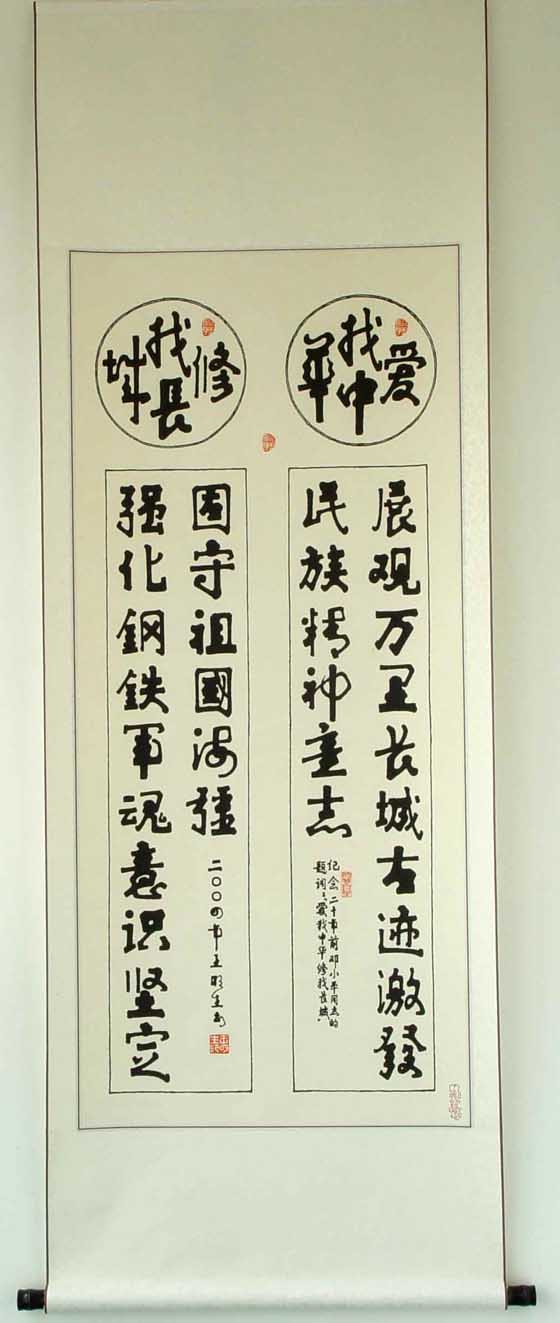 爱我中華
展观万里长城古迹激發
民族精神意志
纪念二十年前邓小平同志的
题词：爱我中华修我长城
修我長城
固守祖國海疆
强化鋼鉄军魂意识坚定
二〇〇四年王明生书